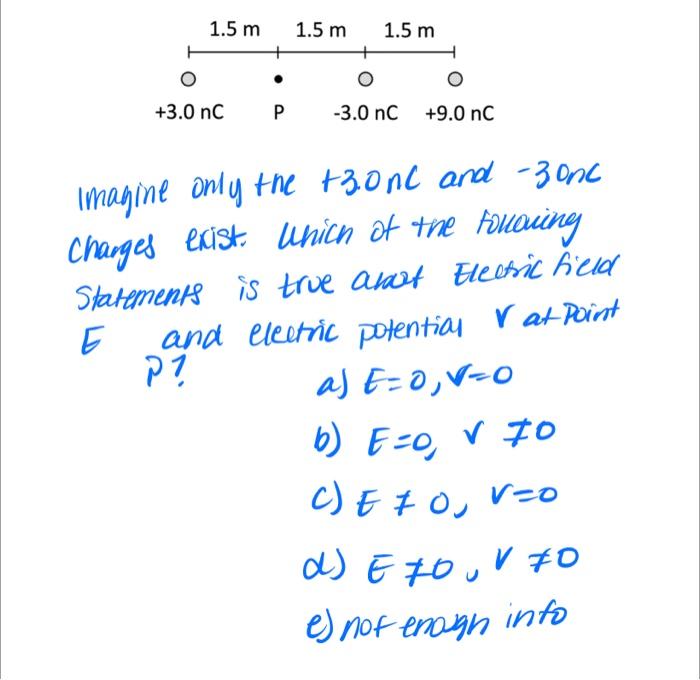 1.5 m 1.5 m 1.5 m
+3.0 nC P -3.0 nC +9.0 nC
Imagine only the +3.0nC and -3.0nC
Charges exist. Which of the following
Statements is true about Electric field
E and electric potential V at Point
P?
a) E=0, V=0
b) E=0, V ≠0
c) E ≠ 0, V=0
d) E ≠0, V ≠0
e) not enough info